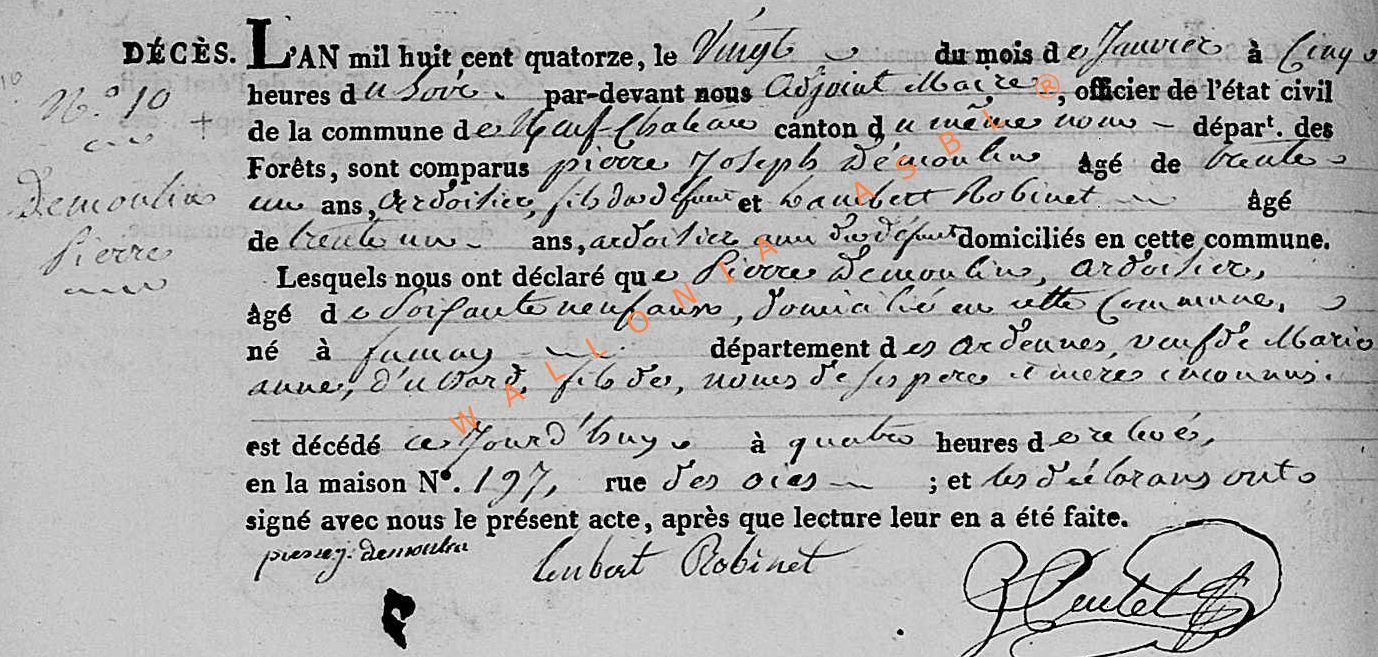 DÉCÈS. L'AN mil huit cent quatorze, le Vingt du mois de Janvier à Cinq
heures du Soir par-devant nous Adjoint Maire, officier de l'état civil
N.° 10
de la commune de Neuf-Chateau canton du même nom départ. des
Forêts, sont comparus pierre Joseph Démoulin âgé de trente
Demoulin
un ans, Ardoisier, fils du défunt et Lambert Robinet âgé
Pierre
de trente un ans, ardoisier défunt domiciliés en cette commune.
Lesquels nous ont déclaré que Pierre Demoulin, ardoisier,
âgé de Soixante neuf ans, domicilié en cette Commune,
né à fumay département des Ardennes, veuf de Marie
anne, fils des, noms de ses pere et meres inconnus.
est décédé ce Jourd'huy à quatre heures de relevés,
en la maison N°. 197, rue des oies ; et les déclarans ont
signé avec nous le présent acte, après que lecture leur en a été faite.
pierre j. demoulin Lambert Robinet
WALLONIA ASBL ®